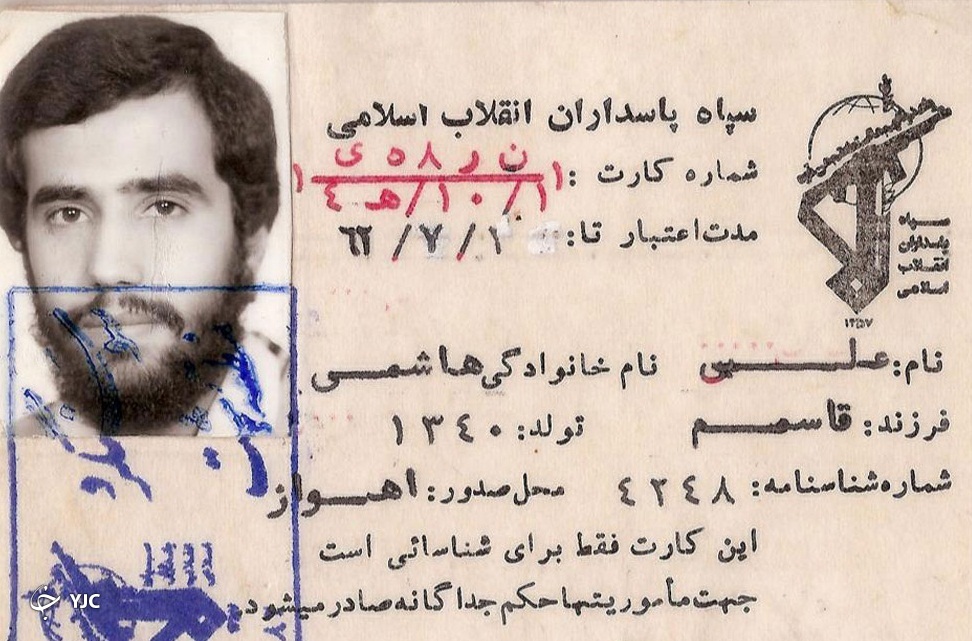 سپاه پاسداران انقلاب اسلامی
شماره کارت :
ن ر ۸ ۵ ی
۱/۱۰/هـ ٤
مدت اعتبار تا: ۱۰ / ۷ / ٦۲
سپاه
پاسداران
انقلاب
اسلامی
۱۳۵۷
نام: علی نام خانوادگی هاشمی
فرزند: قاسم تولد: ۱۳٤۰
شماره شناسنامه: ٤۲٤۸ محل صدور: اهواز
این کارت فقط برای شناسائی است
جهت مأموریتها حکم جداگانه صادر میشود
YJC